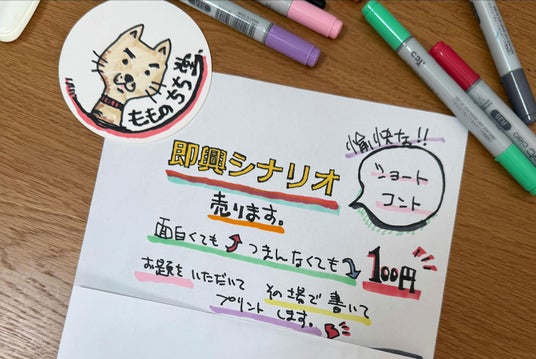 もものちち堂。
愉快な!!
ショート
コント
即興シナリオ
売ります。
面白くても つまんなくても 100円
お題をいただいて その場で書いて
プリントします。